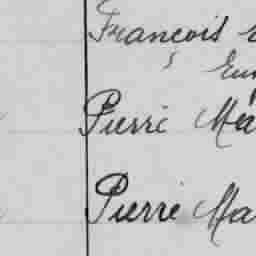 François
Pierre Ma
Pierre Ma